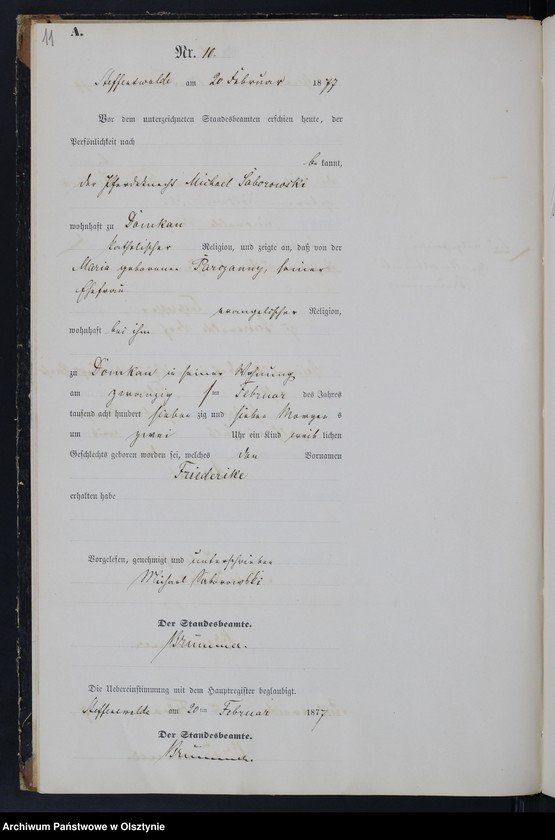 11
A.
Nr. 10.
Steffenswalde am 20 Februar 1877
Vor dem unterzeichneten Standesbeamten erschien heute, der
Persönlichkeit nach
be kannt,
der Pferdeknecht Michael Saborowski
wohnhaft zu Domkau
katholischer Religion, und zeigte an, daß von der
Maria geborenen seiner
Ehefrau
evangelischer Religion,
wohnhaft bei ihm
zu Domkau in seiner Wohnung
am zwanzig sten Februar des Jahres
tausend acht hundert sieben zig und sieben Morgens
um zwei Uhr ein Kind weib lichen
Geschlechts geboren worden sei, welches den Vornamen
Friederike
erhalten habe
Vorgelesen, genehmigt und unterschrieben
Michael Saborowski
Der Standesbeamte.
Die Uebereinstimmung mit dem Hauptregister beglaubigt.
Steffenswalde am 20ten Februar 1877
Der Standesbeamte.
Archiwum Państwowe w Olsztynie